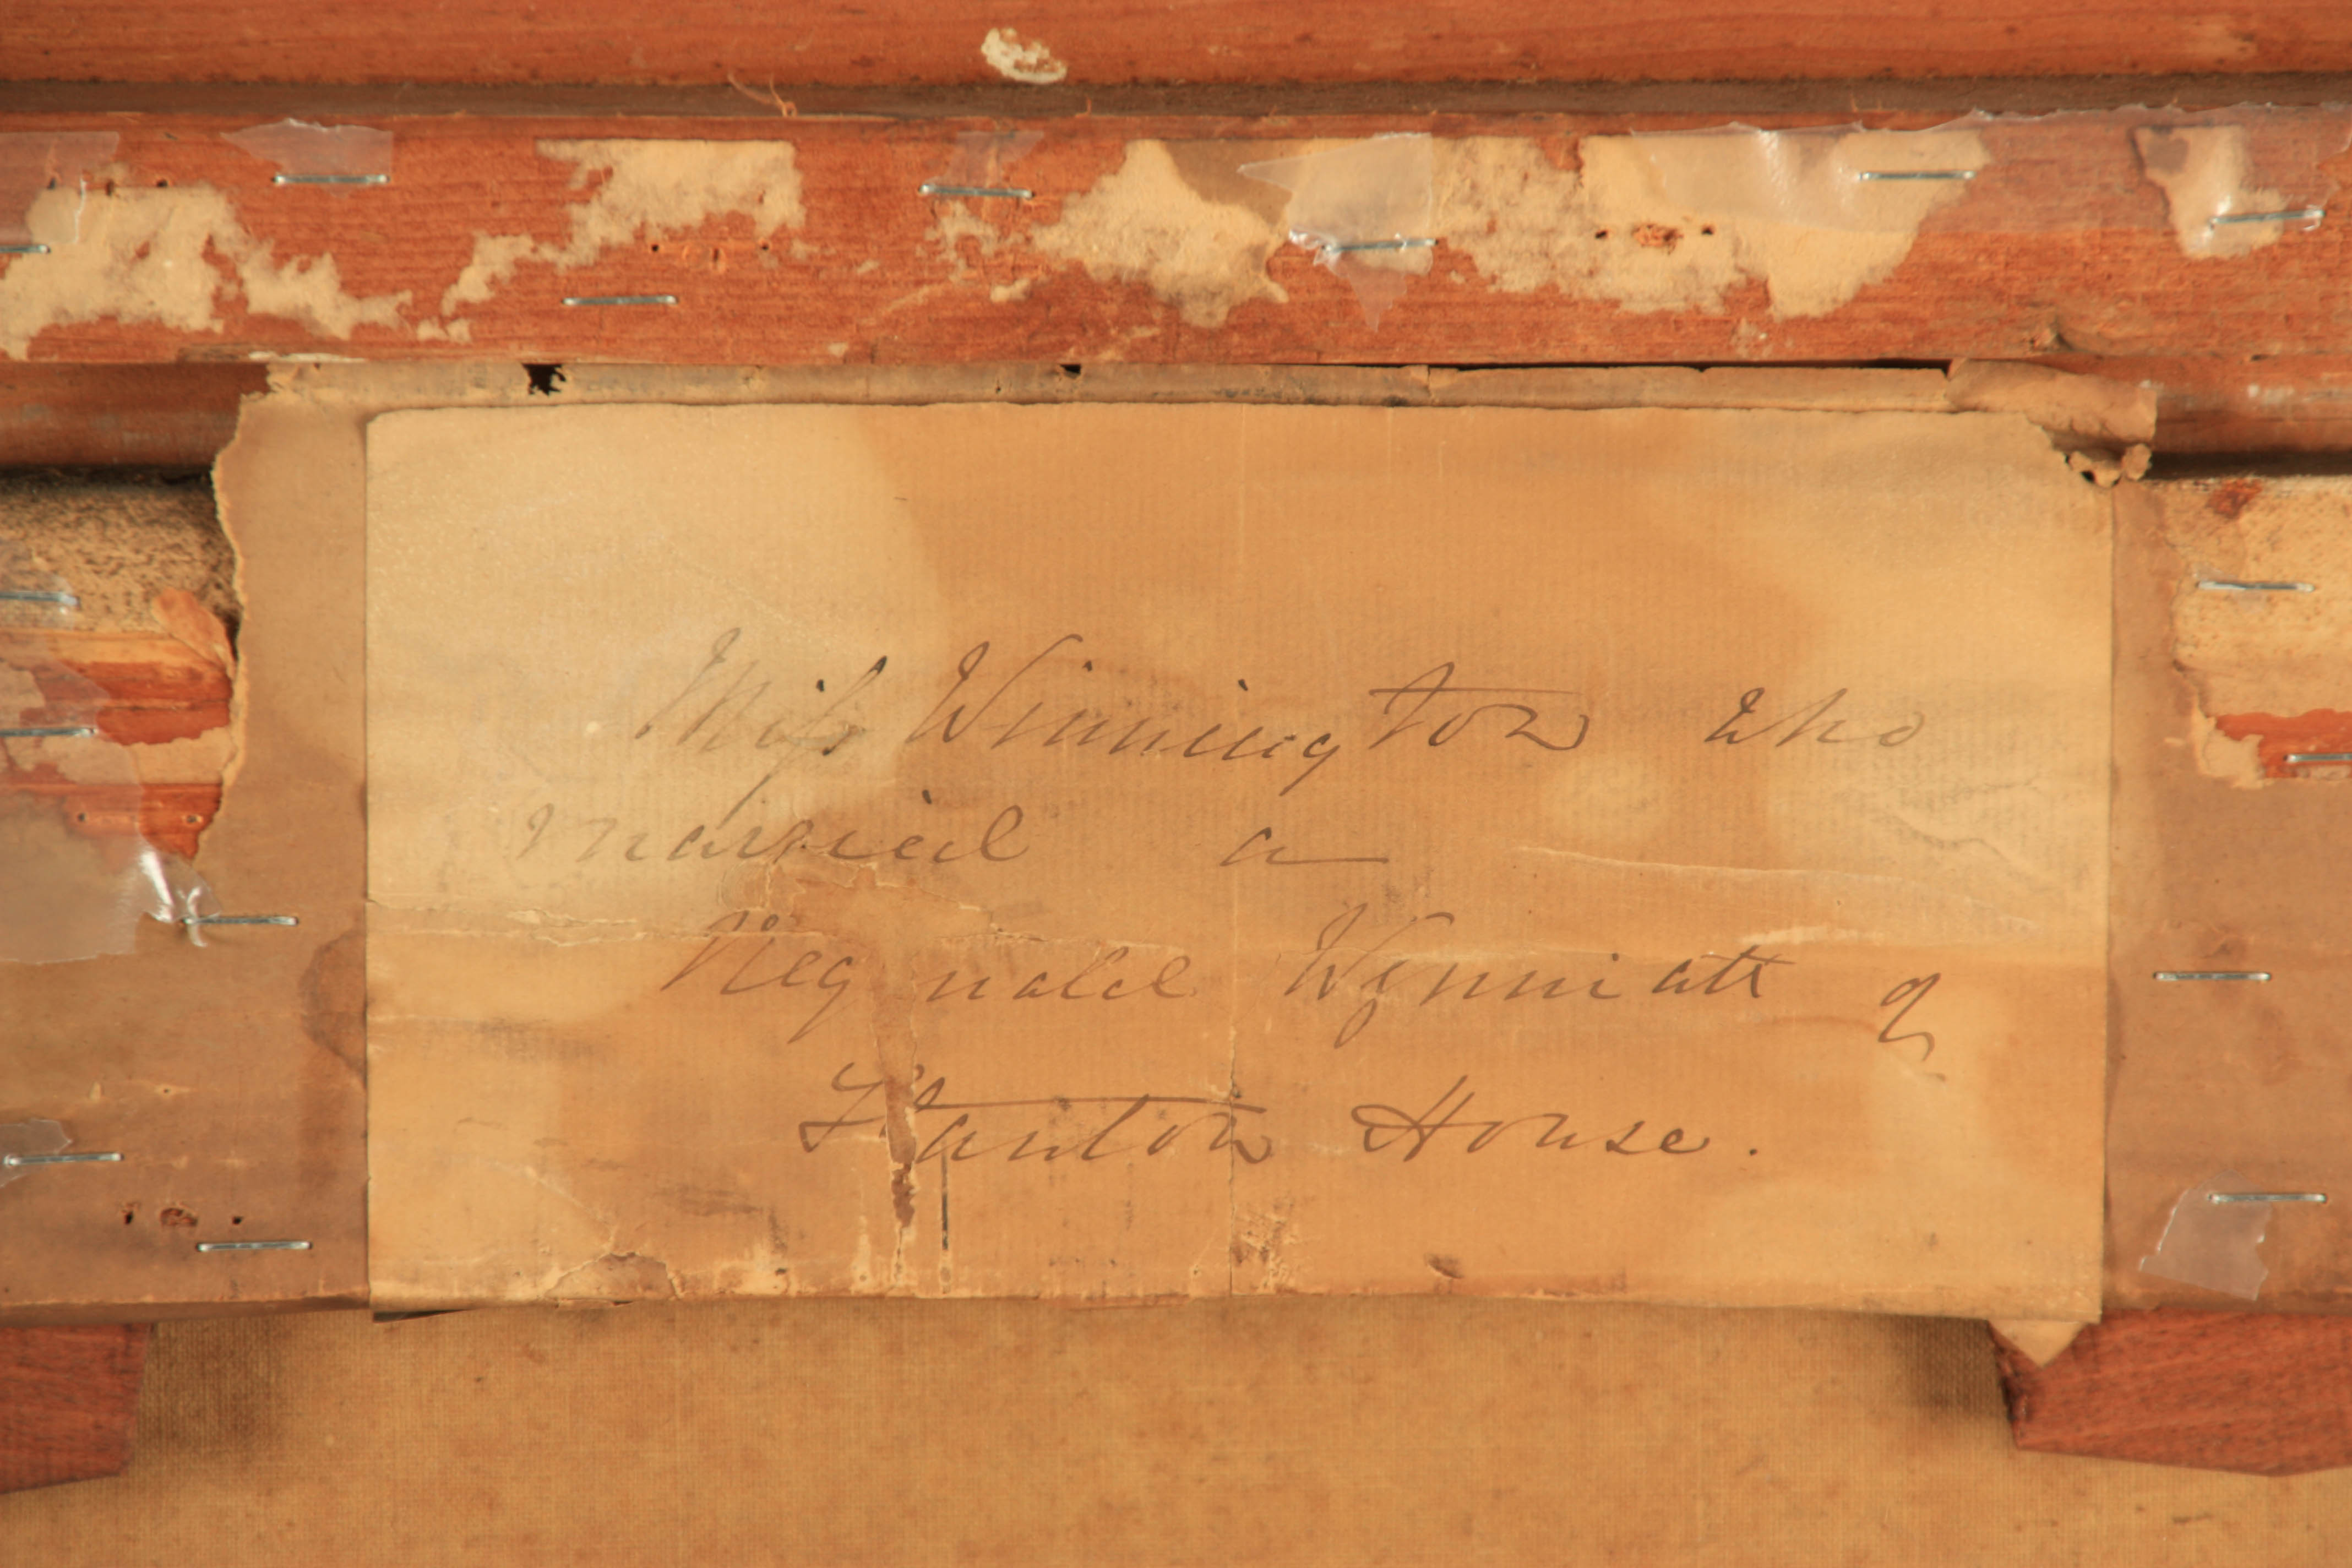 Miss Winnington who
married a
Reginald Wynniatt of
Stanton House.